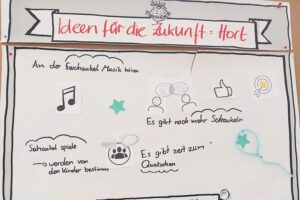 Ideen für die Zukunft: Hort
An der Saschaukel Musik hören
Es gibt noch mehr Schaukeln
Schaukel spiele
→ werden von
den Kinder bestimmt
Es gibt zeit zum
Quatschen